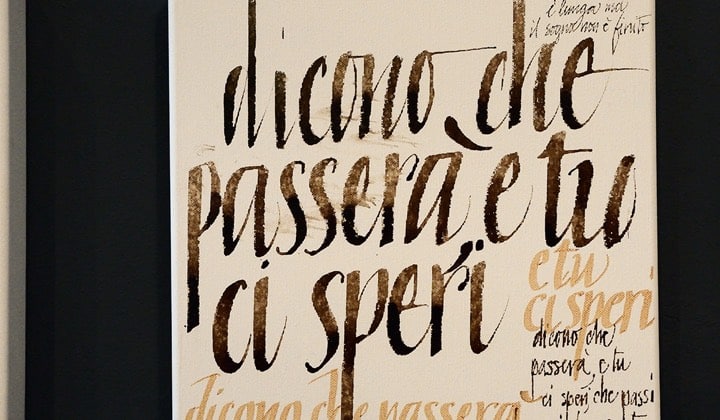 è lunga ma
il sogno non è finito
dicono che
passerà e tu
ci speri
e tu
ci speri
dicono che
passerà, e tu
ci speri che passi
dicono che passerà